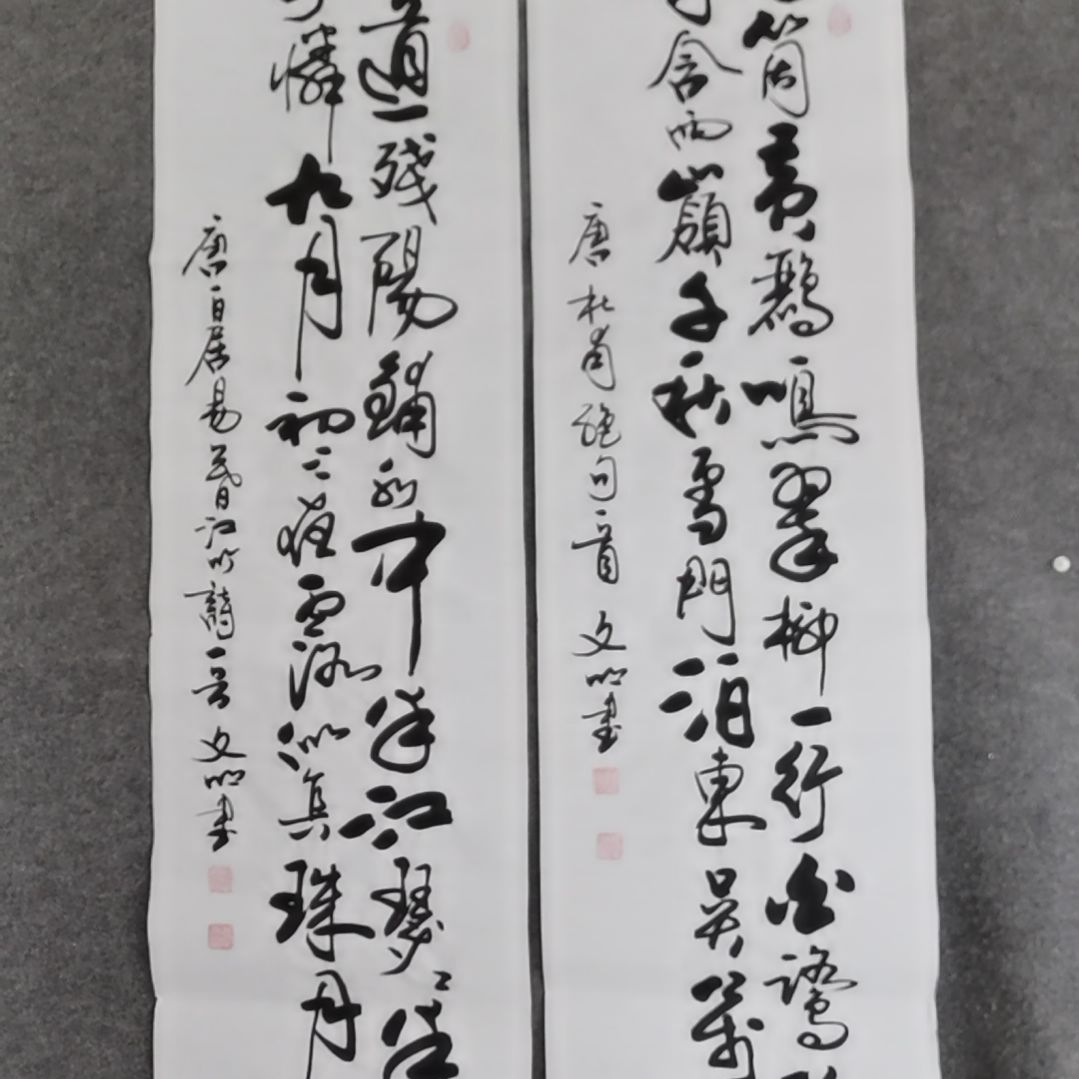 箇黃鸝鳴翠柳一行白鷺
含西嶺千秋雪門泊東吳萬
唐杜甫絕句一首文明書
道殘陽鋪水中半江瑟瑟半
憐九月初三夜露似真珠月
唐白居易暮江吟詩一首文明書